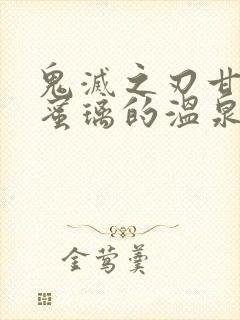 鬼滅之刃甘
蜜璃的溫泉
金莺羹